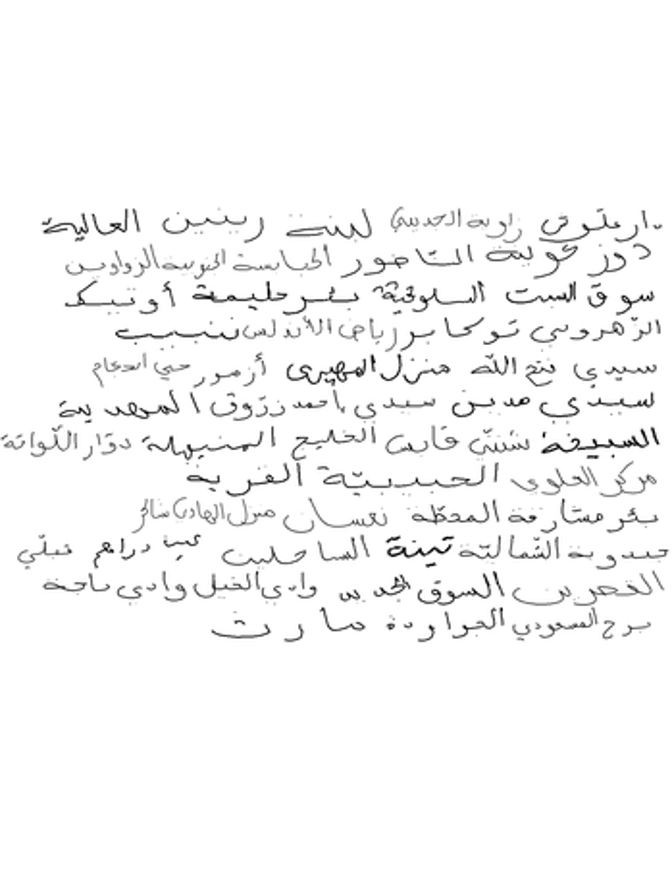 دار علوش زاوية الجديدي لبنة زينين العالية
دوز حولية الناظور الحباسة الجنوبية الزواوين
سوق السبت السلوقية بئر حليمة أوتيك
الزهروني توكابر رياض الأندلس نبيب
سيدي فتح الله منزل المهيري أزمور حي انعام
سيدي مدين سيدي أحمد زروق المهدية
السبيخة شنني قابس الخليج المنيهلة دوار اللواتة
مركز العلوي الحبيبيّة القرية
بئر مشارقة المحطة نفسان منزل الهادي شاكر
جندوبة الشمالية تينة الساحلين عين دراهم قبلّي
القصرين السوق الجديد وادي الخيل وادي باجة
برج المسعودي الجواودة مارث